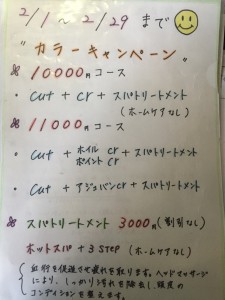 2/1 〜 2/29 まで
"カラーキャンペーン"
※ 10000円 コース
・ cut + cr + スパトリートメント
(ホームケアなし)
※ 11000円 コース
・ cut + ホイル cr + スパトリートメント
ポイント cr
・ cut + アジュバンcr + スパトリートメント
※ スパトリートメント 3000円 (割引なし)
ホットスパ + 3 STEP (ホームケアなし)
血行を促進させ疲れを取ります。ヘッドマッサージ
により、しっかり汚れを除去し、頭皮の
コンディションを整えます。